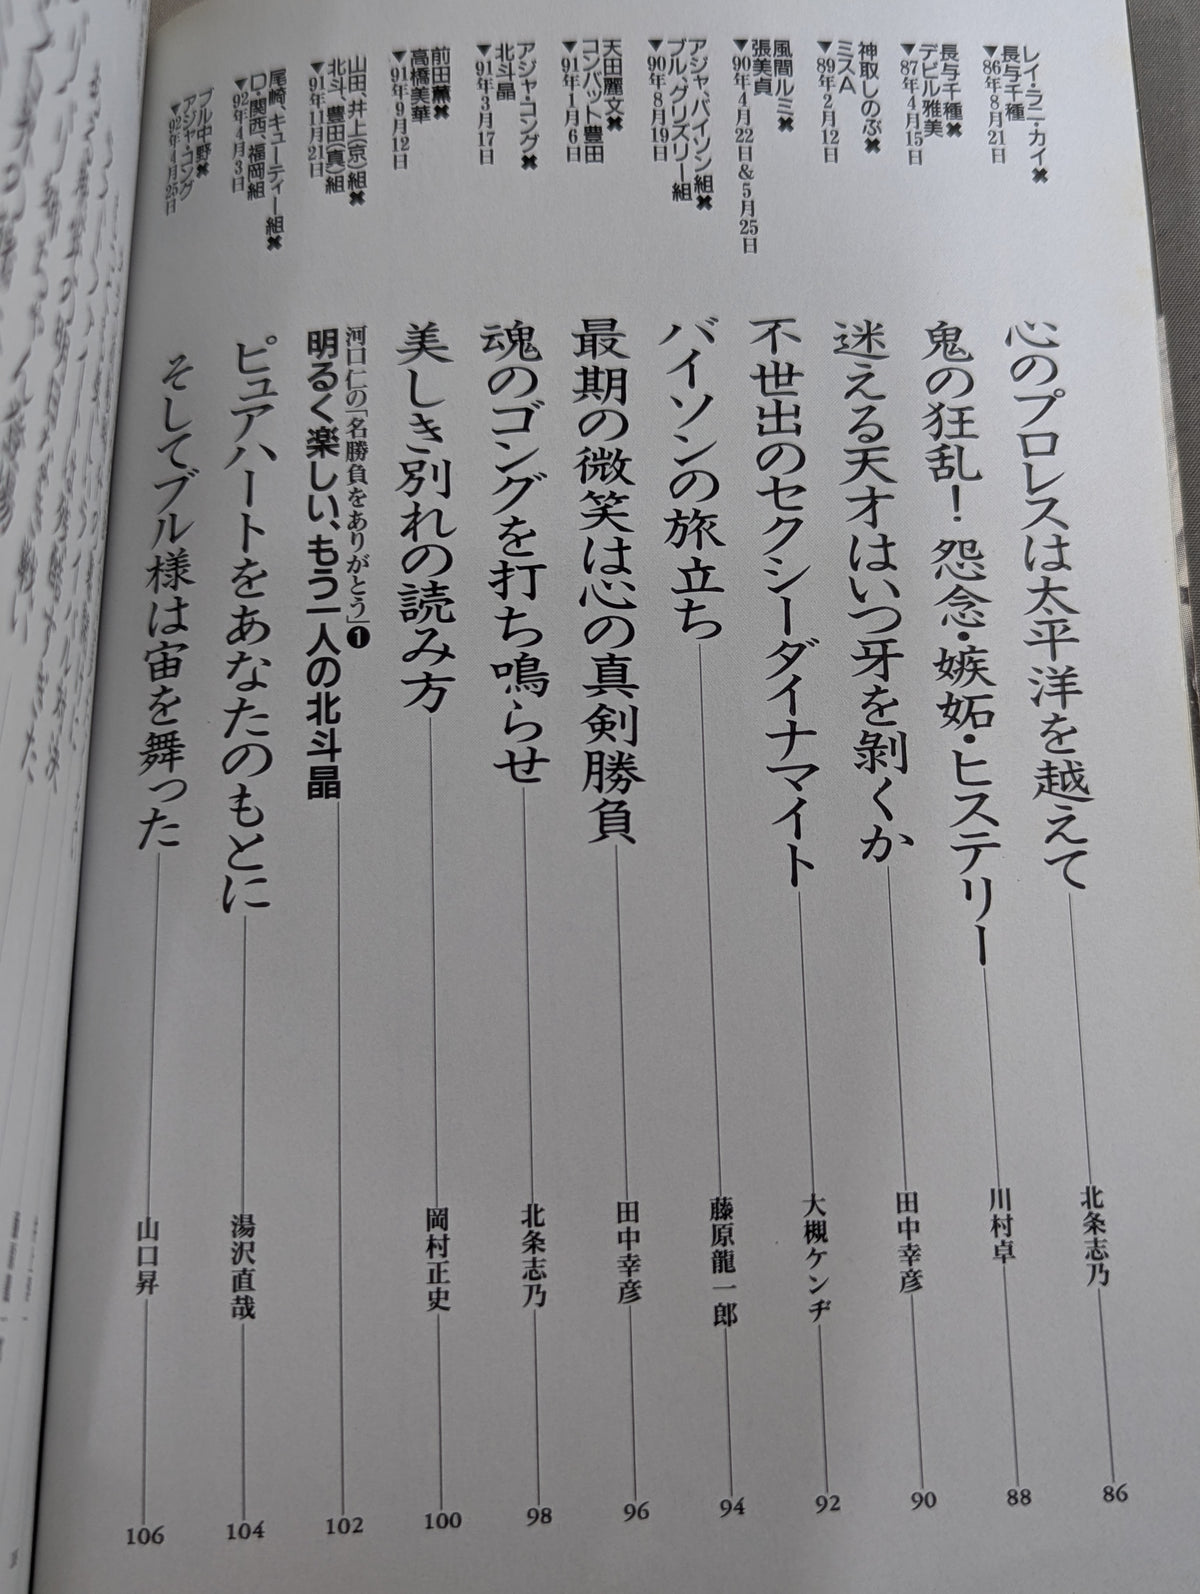 レイ・ラニ・カイ✖
長与千種
▼86年8月21日
心のプロレスは太平洋を越えて
北条志乃
86
長与千種✖
デビル雅美
▼87年4月15日
鬼の狂乱！怨念・嫉妬・ヒステリー
川村卓
88
神取しのぶ✖
ミスA
▼89年2月12日
迷える天才はいつ牙を剝くか
田中幸彦
90
風間ルミ✖
張美貞
▼90年4月22日&5月25日
不世出のセクシーダイナマイト
大槻ケンヂ
92
アジャ、バイソン組✖
ブル、グリズリー組
▼90年8月19日
バイソンの旅立ち
藤原龍一郎
94
天田麗文✖
コンバット豊田
▼91年1月6日
最期の微笑は心の真剣勝負
田中幸彦
96
アジャ・コング✖
北斗晶
▼91年3月17日
魂のゴングを打ち鳴らせ
北条志乃
98
前田薫✖
高橋美華
▼91年9月12日
美しき別れの読み方
岡村正史
100
山田、井上（京）組✖
北斗、豊田（真）組
▼91年11月21日
河口仁の「名勝負をありがとう」❶
明るく楽しい、もう一人の北斗晶
102
尾崎、キューティー組✖
D・関西、福岡組
▼92年4月3日
ピュアハートをあなたのもとに
湯沢直哉
104
ブル中野✖
アジャ・コング
▼92年4月25日
そしてブル様は宙を舞った
山口昇
106